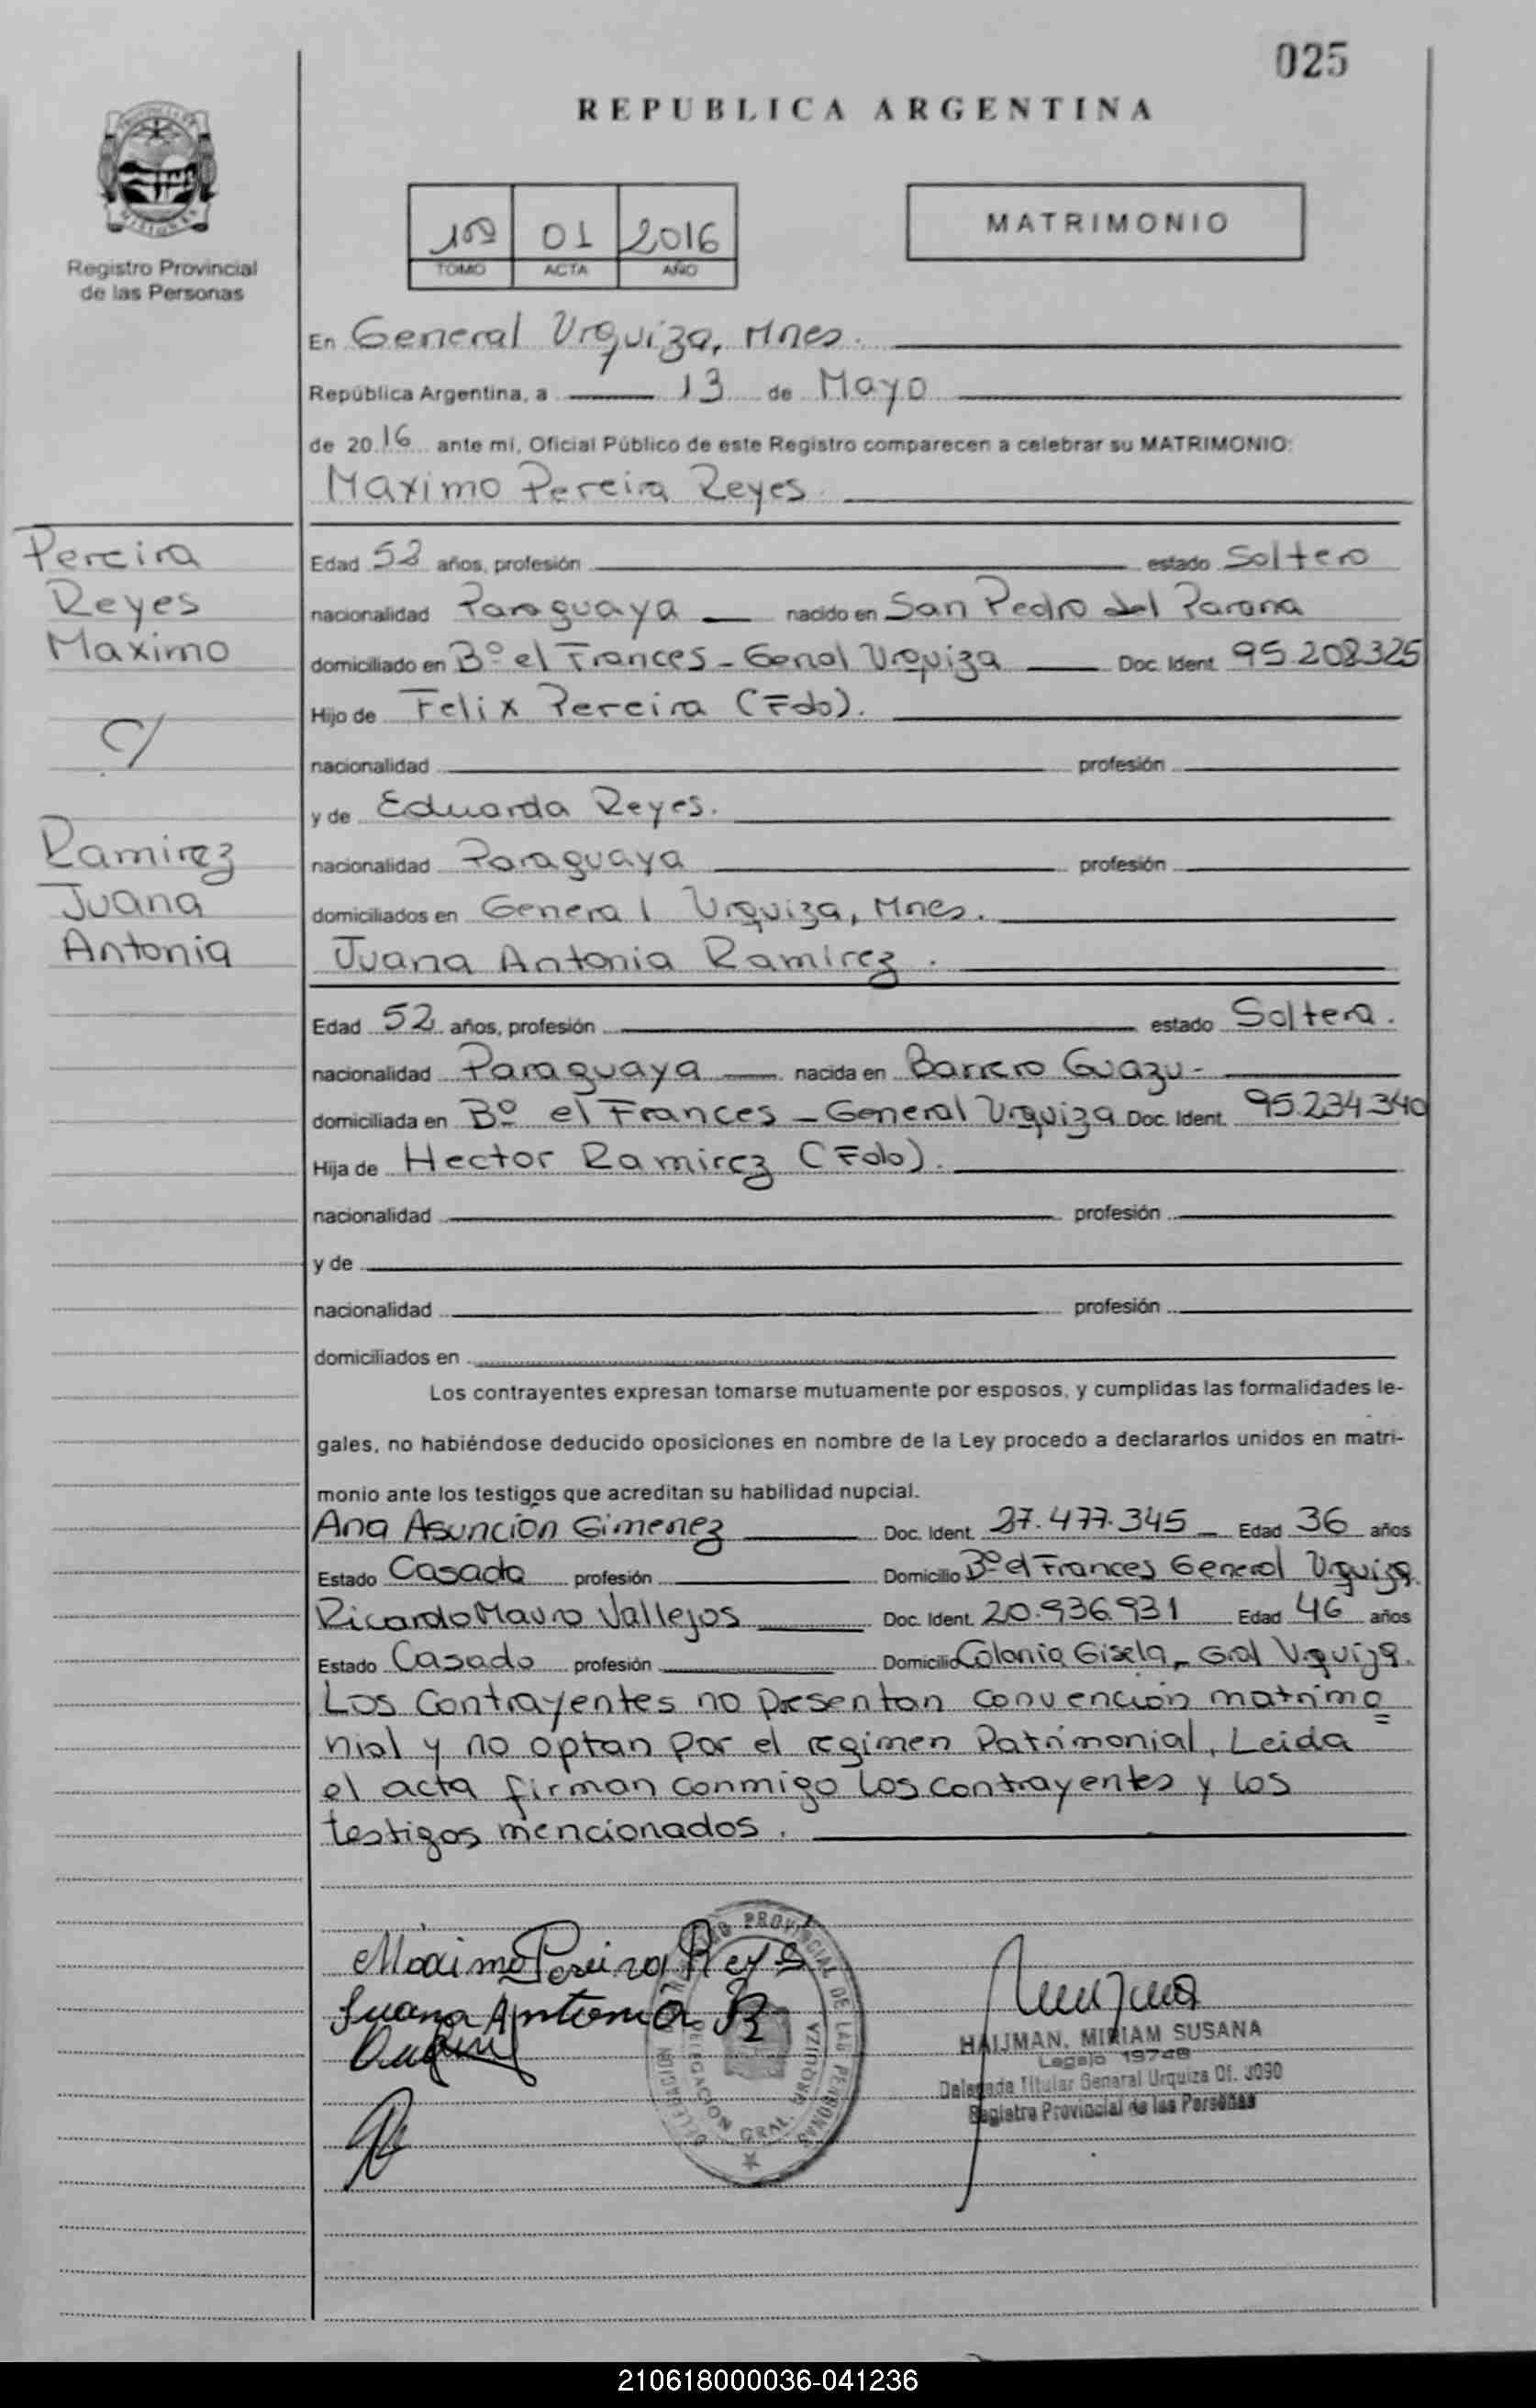 025
REPUBLICA ARGENTINA
MISIONES
Registro Provincial
de las Personas
01 2016
TOMO ACTA AÑO
MATRIMONIO
En General Urquiza, Mnes.
República Argentina, a 13 de Mayo
de 2016 ante mí, Oficial Público de este Registro comparecen a celebrar su MATRIMONIO:
Maximo Pereira Reyes
Pereira
Reyes
Maximo
C/
Ramirez
Juana
Antonia
Edad 52 años, profesión estado Soltero
nacionalidad Paraguaya nacido en San Pedro del Parana
domiciliado en Bº el Frances - Genal Urquiza Doc. Ident. 95.208.325
Hijo de Felix Pereira (Fdo).
nacionalidad profesión
y de Eduarda Reyes.
nacionalidad Paraguaya profesión
domiciliados en General Urquiza, Mnes.
Juana Antonia Ramirez.
Edad 52 años, profesión estado Soltera.
nacionalidad Paraguaya nacida en Barrero Guazu-
domiciliada en Bº el Frances - General Urquiza Doc. Ident. 95.234.340
Hija de Hector Ramirez (Fdo).
nacionalidad profesión
y de
nacionalidad profesión
domiciliados en
Los contrayentes expresan tomarse mutuamente por esposos, y cumplidas las formalidades le-
gales, no habiéndose deducido oposiciones en nombre de la Ley procedo a declararlos unidos en matri-
monio ante los testigos que acreditan su habilidad nupcial.
Ana Asunción Gimenez Doc. Ident. 27.477.345 Edad 36 años
Estado Casada profesión Domicilio Bº el Frances General Urquiza
Ricardo Mauro Vallejos Doc. Ident. 20.936.931 Edad 46 años
Estado Casado profesión Domicilio Colonia Gisela, Gral Urquiza.
Los Contrayentes no presentan convención matrimo=
nial y no optan por el regimen Patrimonial, Leida
el acta firman conmigo los contrayentes y los
testigos mencionados.
Máximo Pereira Reyes
Juana Antonia R
REGISTRO PROVINCIAL DE LAS PERSONAS
DELEGACION GRAL. URQUIZA
HAIJMAN, MIRIAM SUSANA
Legajo 19748
Delegada Titular General Urquiza Of. 3090
Registro Provincial de las Personas
210618000036-041236